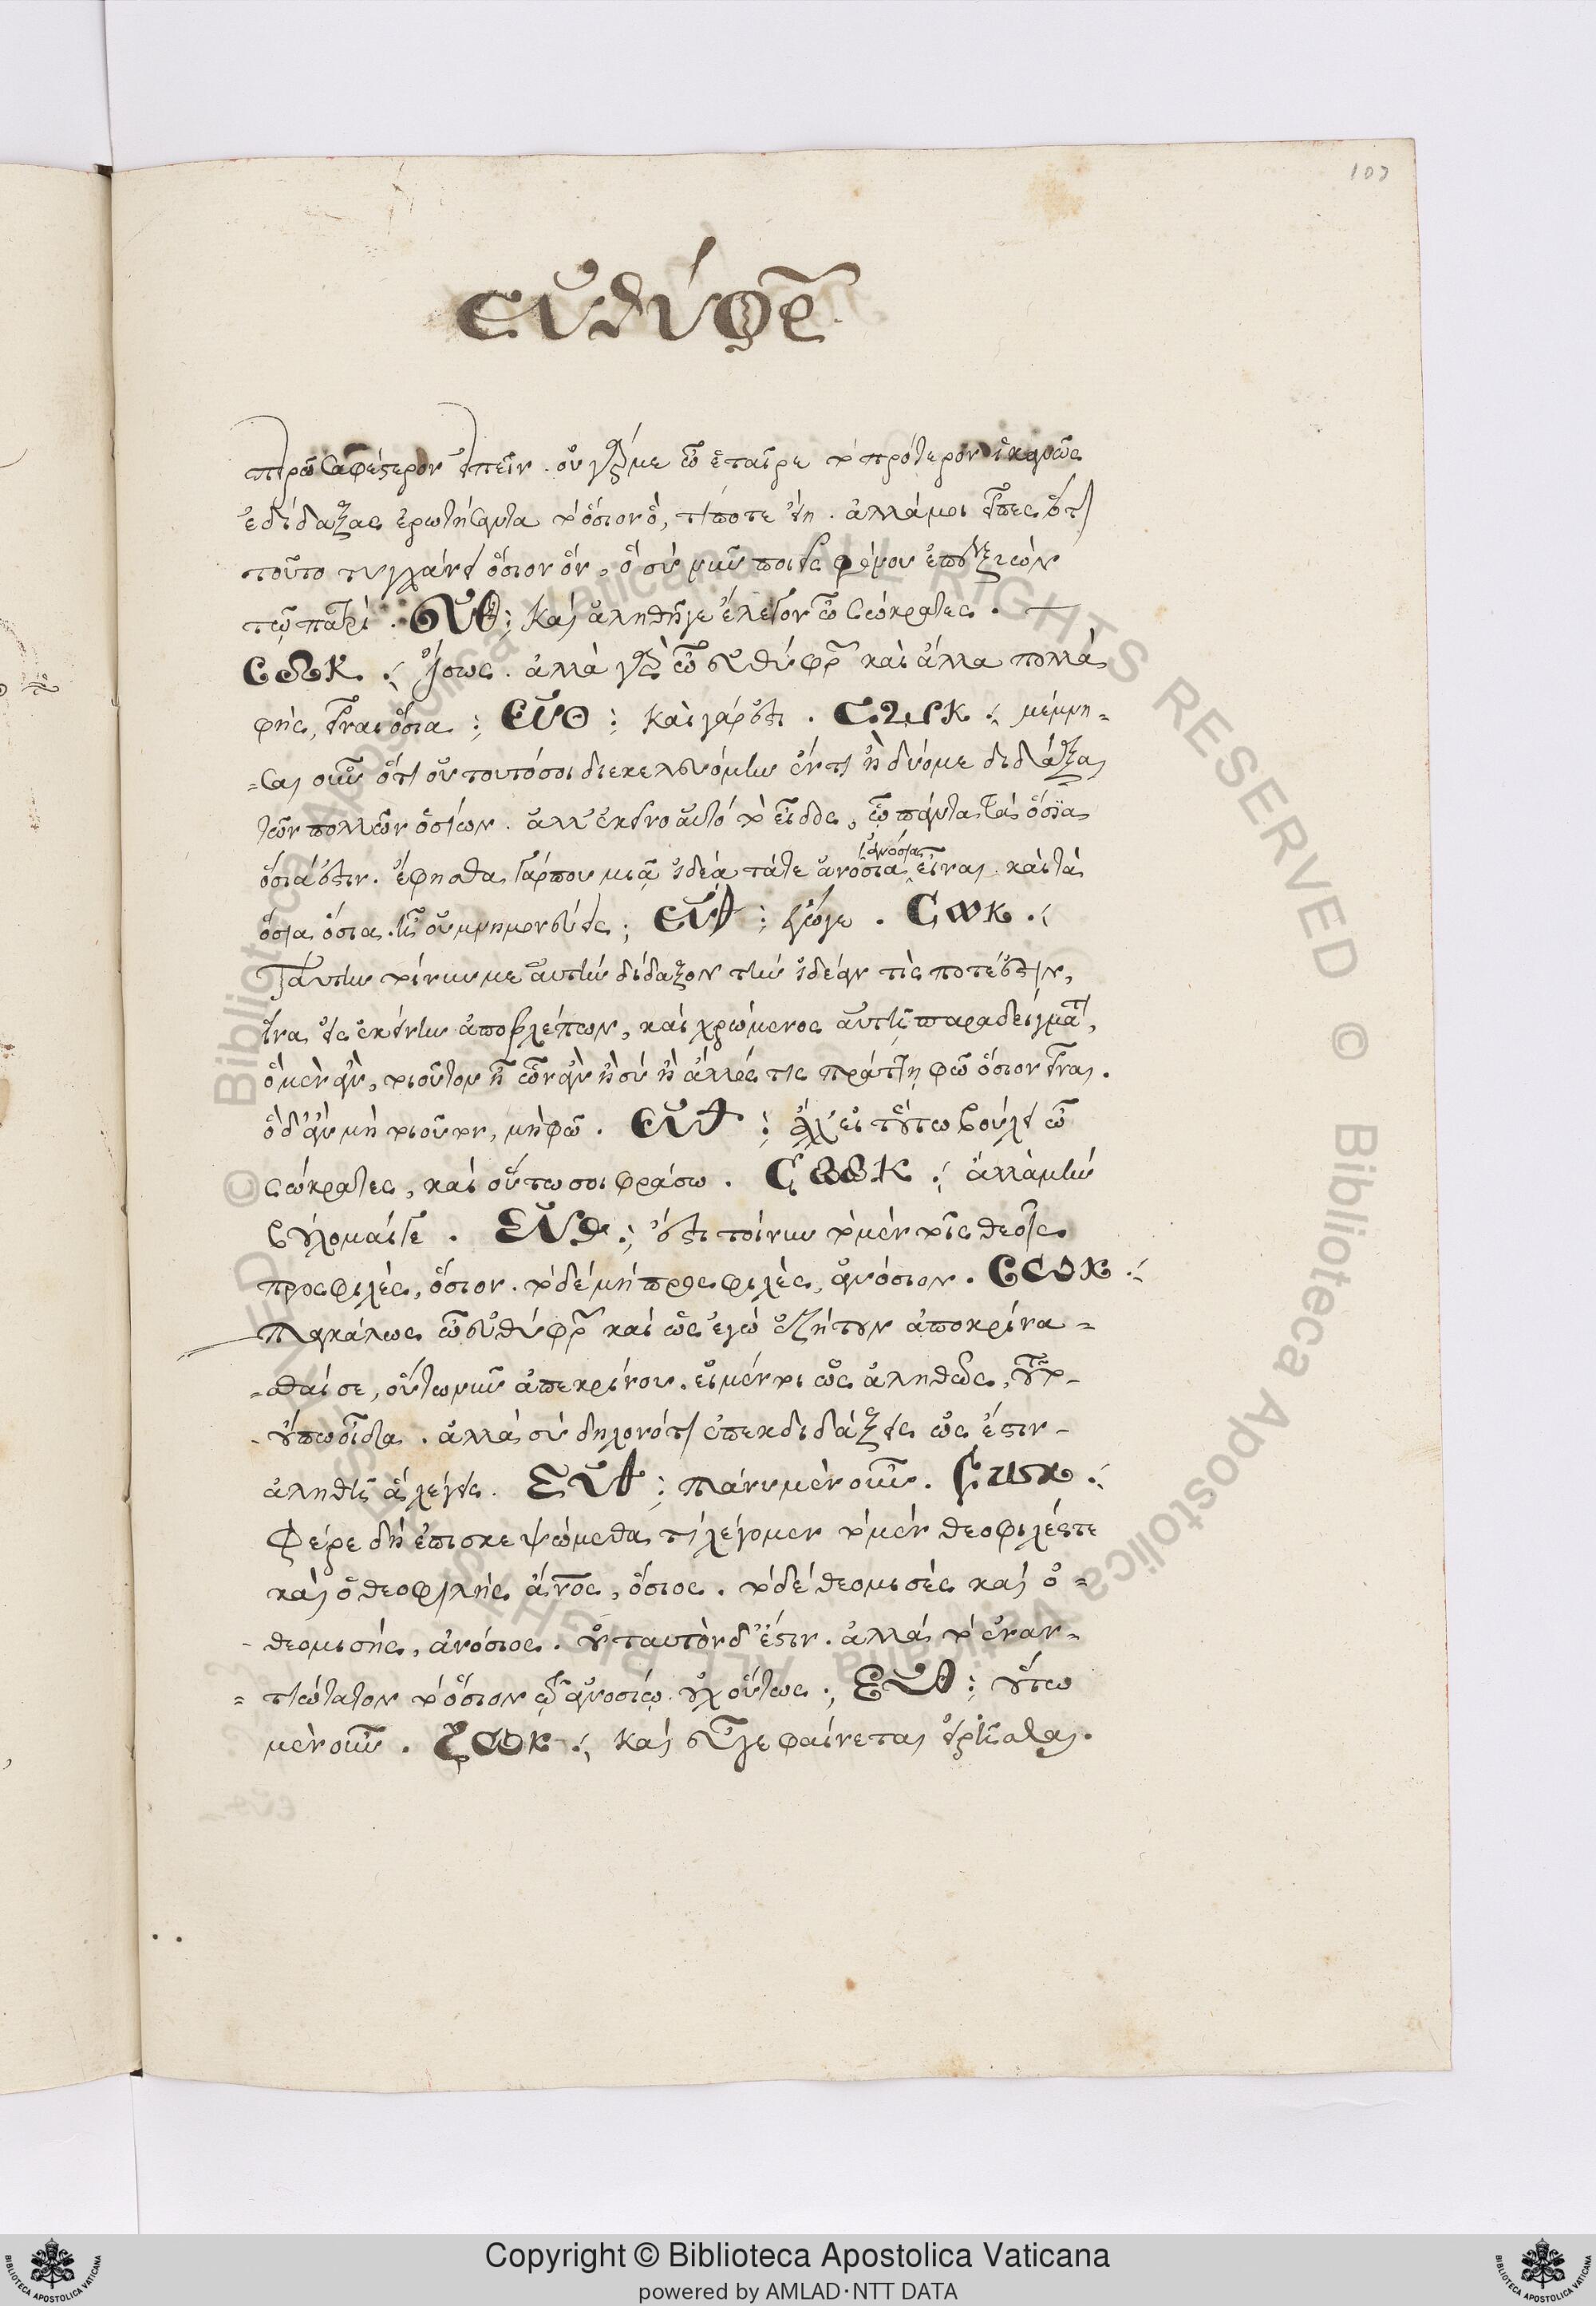 103
εὐθύφρ
πειρῶ σαφέστερον εἰπεῖν. οὐ γάρ με ὦ ἑταῖρε τὸ πρότερον ἱκανῶς
ἐδίδαξας ἐρωτήσαντα τὸ ὅσιον ὃ, τί ποτε εἴη. ἀλλά μοι εἶπες ὅτι
τοῦτο τυγχάνει ὅσιον ὂν, ὃ σὺ νῦν ποιεῖς φόνου ἐπεξιὼν
τῷ πατρί. εὐθ: καὶ ἀληθῆ γε ἔλεγον ὦ σώκρατες.
σωκ: ἴσως. ἀλλὰ γὰρ ὦ εὐθύφρ καὶ ἄλλα πολλὰ
φῂς, εἶναι ὅσια: εὐθ: καὶ γάρ ἐστι. σωκ: μέμνη=
=σαι οὖν ὅτι οὐ τοῦτό σοι διεκελευόμην ἕν τι ἢ δύο με διδάξαι
τῶν πολλῶν ὁσίων. ἀλλ' ἐκεῖνο αὐτὸ τὸ εἶδος, ᾧ πάντα τὰ ὅσια
ὅσιά ἐστιν. ἔφησθα γάρ που μιᾷ ἰδέᾳ τά τε ἀνόσια ἀνόσια εἶναι. καὶ τὰ
ὅσια ὅσια. ἢ οὐ μνημονεύεις; εὐθ: ἔγωγε. σωκ:
ταύτην τοίνυν με αὐτὴν δίδαξον τὴν ἰδέαν τίς ποτέ ἐστιν,
ἵνα εἰς ἐκείνην ἀποβλέπων, καὶ χρώμενος αὐτῇ παραδείγματι,
ὃ μὲν ἂν, τοιοῦτον ᾖ ὧν ἂν ἢ σὺ ἢ ἄλλος τις πράττῃ φῶ ὅσιον εἶναι.
ὃ δ' ἂν μὴ τοιοῦτον, μὴ φῶ. εὐθ: ἀλλ' εἰ οὕτω βούλει ὦ
σώκρατες, καὶ οὕτω σοι φράσω. σωκ: ἀλλὰ μὴν
βούλομαί γε. εὐθ: ἔστι τοίνυν τὸ μὲν τοῖς θεοῖς
προσφιλὲς, ὅσιον. τὸ δὲ μὴ προσφιλὲς, ἀνόσιον. σωκ:
παγκάλως ὦ εὐθύφρ καὶ ὡς ἐγὼ ἐζήτουν ἀποκρίνα=
=σθαί σε, οὕτω νῦν ἀπεκρίνου. εἰ μέντοι ὡς ἀληθῶς, τοῦτο
οὔπω οἶδα. ἀλλὰ σὺ δηλονότι ἐπεκδιδάξεις ὡς ἔστιν
ἀληθῆ ἃ λέγεις. εὐθ: πάνυ μὲν οὖν. σωκ:
φέρε δὴ ἐπισκεψώμεθα τί λέγομεν τὸ μὲν θεοφιλές τε
καὶ ὁ θεοφιλὴς ἄνος, ὅσιος. τὸ δὲ θεομισὲς καὶ ὁ=
-θεομισὴς, ἀνόσιος. οὐ ταυτὸν δ' ἐστίν. ἀλλὰ τὸ ἐναν=
=τιώτατον τὸ ὅσιον τῷ ἀνοσίῳ. οὐχ οὕτως; εὐθ: οὕτω
μὲν οὖν. σωκ: καὶ εὖ γε φαίνεται εἰρῆσθαι.
Copyright © Biblioteca Apostolica Vaticana
powered by AMLAD·NTT DATA